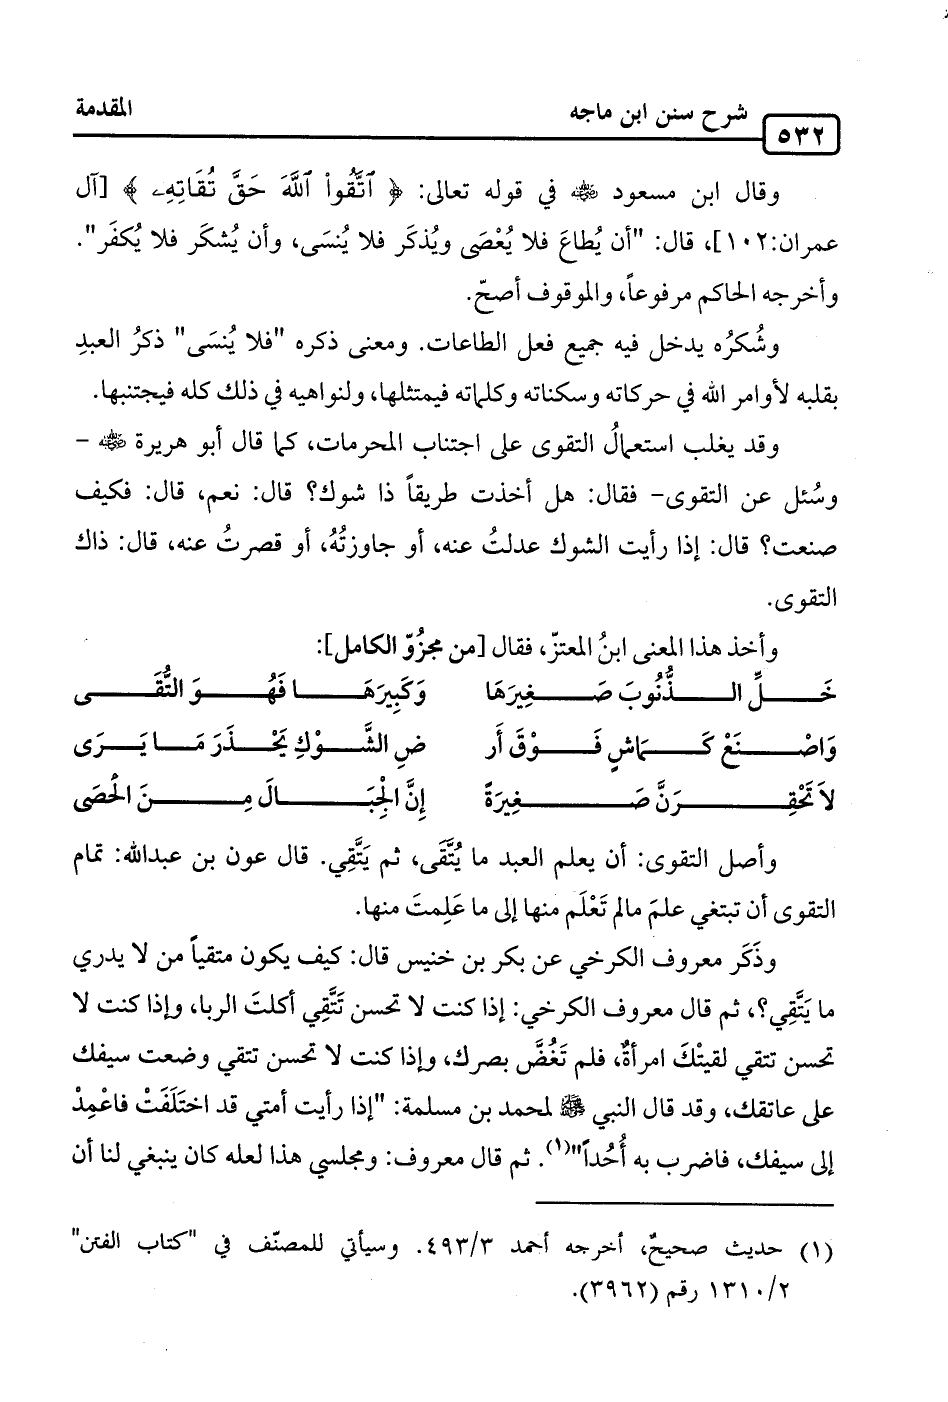 المقدمة
شرح سنن ابن ماجه
٥٣٢
وقال ابن مسعود ﵁ في قوله تعالى: ﴿ ٱتَّقُواْ ٱللَّهَ حَقَّ تُقَاتِهِۦ ﴾ [آل
عمران:١٠٢]، قال: "أن يُطاعَ فلا يُعْصَى ويُذكَر فلا يُنسَى، وأن يُشكَر فلا يُكفَر".
وأخرجه الحاكم مرفوعاً، والموقوف أصحّ.
وشُكرُه يدخل فيه جميع فعل الطاعات. ومعنى ذكره "فلا يُنسَى" ذكرُ العبدِ
بقلبه لأوامر الله في حركاته وسكناته وكلماته فيمتثلها، ولنواهيه في ذلك كله فيجتنبها.
وقد يغلب استعمالُ التقوى على اجتناب المحرمات، كما قال أبو هريرة ﵁ -
وسُئل عن التقوى- فقال: هل أخذت طريقاً ذا شوك؟ قال: نعم، قال: فكيف
صنعت؟ قال: إذا رأيت الشوك عدلتُ عنه، أو جاوزتُهُ، أو قصرتُ عنه، قال: ذاك
التقوى.
وأخذ هذا المعنى ابنُ المعتزّ، فقال [من مجزُوّ الكامل]:
خَلِّ الذُّنُوبَ صَغِيرَهَا وَكَبِيرَهَا فَهُوَ التُّقَى
وَاصْنَعْ كَمَاشٍ فَوْقَ أَر ضِ الشَّوْكِ يَحْذَرَ مَا يَرَى
لاَ تَحْقِرَنَّ صَغِيرَةً إِنَّ الْجِبَالَ مِنَ الْحُصَى
وأصل التقوى: أن يعلم العبد ما يُتَّقَى، ثم يَتَّقِي. قال عون بن عبدالله: تمام
التقوى أن تبتغي علمَ مالم تَعْلَم منها إلى ما عَلِمتَ منها.
وذَكَر معروف الكرخي عن بكر بن خنيس قال: كيف يكون متقياً من لا يدري
ما يَتَّقِي؟، ثم قال معروف الكرخي: إذا كنت لا تحسن تَتَّقِي أكلتَ الربا، وإذا كنت لا
تحسن تتقي لقيتْكَ امرأةٌ، فلم تَغُضَّ بصرك، وإذا كنت لا تحسن تتقي وضعت سيفك
على عاتقك، وقد قال النبي ﷺ لمحمد بن مسلمة: "إذا رأيت أمتي قد اختَلَفَتْ فاعْمِدْ
إلى سيفك، فاضرب به أُحُداً"(١). ثم قال معروف: ومجلسي هذا لعله كان ينبغي لنا أن
(١) حديث صحيحٌ، أخرجه أحمد ٤٩٣/٣. وسيأتي للمصنّف في "كتاب الفتن"
١٣١٠/٢ رقم (٣٩٦٢).